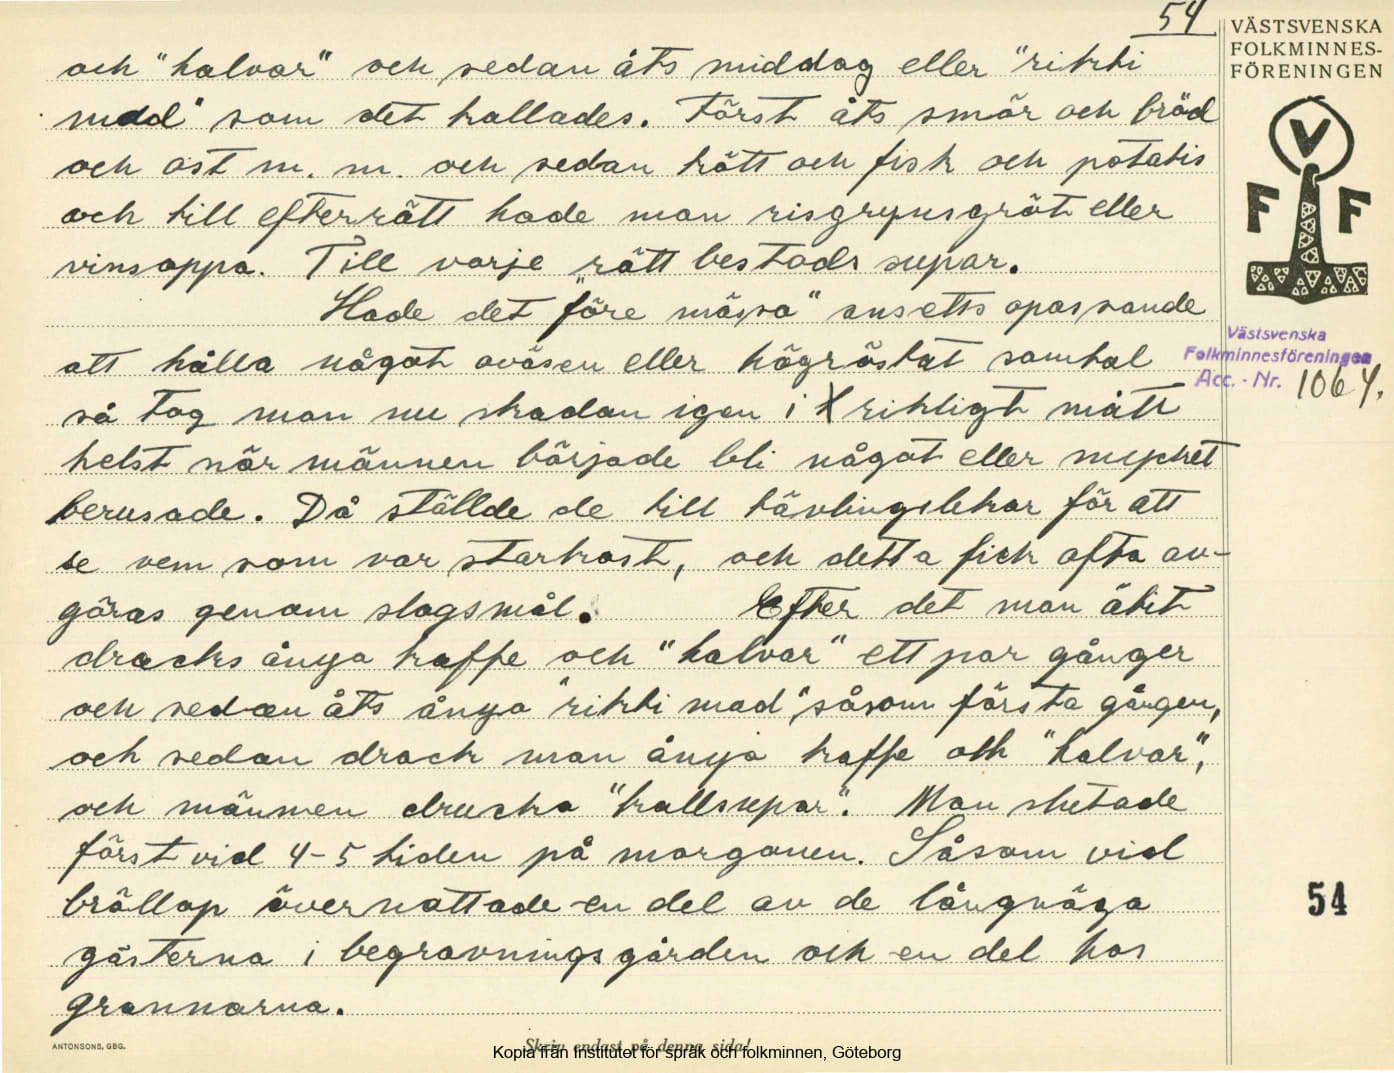 54
VÄSTSVENSKA
FOLKMINNES-
FÖRENINGEN
och "halvor" och sedan åts middag eller "rikti
mad" som det kallades. Först åts smör och bröd
och ost m. m. och sedan kött och fisk och potatis
och till efterrätt hade man risgrynsgröt eller
vinsoppa. Till varje rätt bestods supar.
Hade det "före mässa" ansetts opassande
att hålla något oväsen eller högröstat samtal
så tog man nu skadan igen i riktligt mått
helst när männen började bli något eller mycket
berusade. Då ställde de till tävlingslekar för att
se vem som var starkast, och detta fick ofta av-
göras genom slagsmål. Efter det man ätit
dracks ånyo kaffe och "halvar" ett par gånger
och sedan åts ånyo "rikti mad", såsom första gången,
och sedan drack man ånyo kaffe och "halvar",
och männen drucko "kallsupar". Man slutade
först vid 4-5 tiden på morgonen. Såsom vid
bröllop övernattade en del av de långväga
gästerna i begravningsgården och en del hos
grannarna.
V
F F
Västsvenska
Folkminnesföreningen
Acc. - Nr. 1064.
54
ANTONSONS, GBG.
Skriv endast på denna sida!
Kopia från Institutet för språk och folkminnen, Göteborg